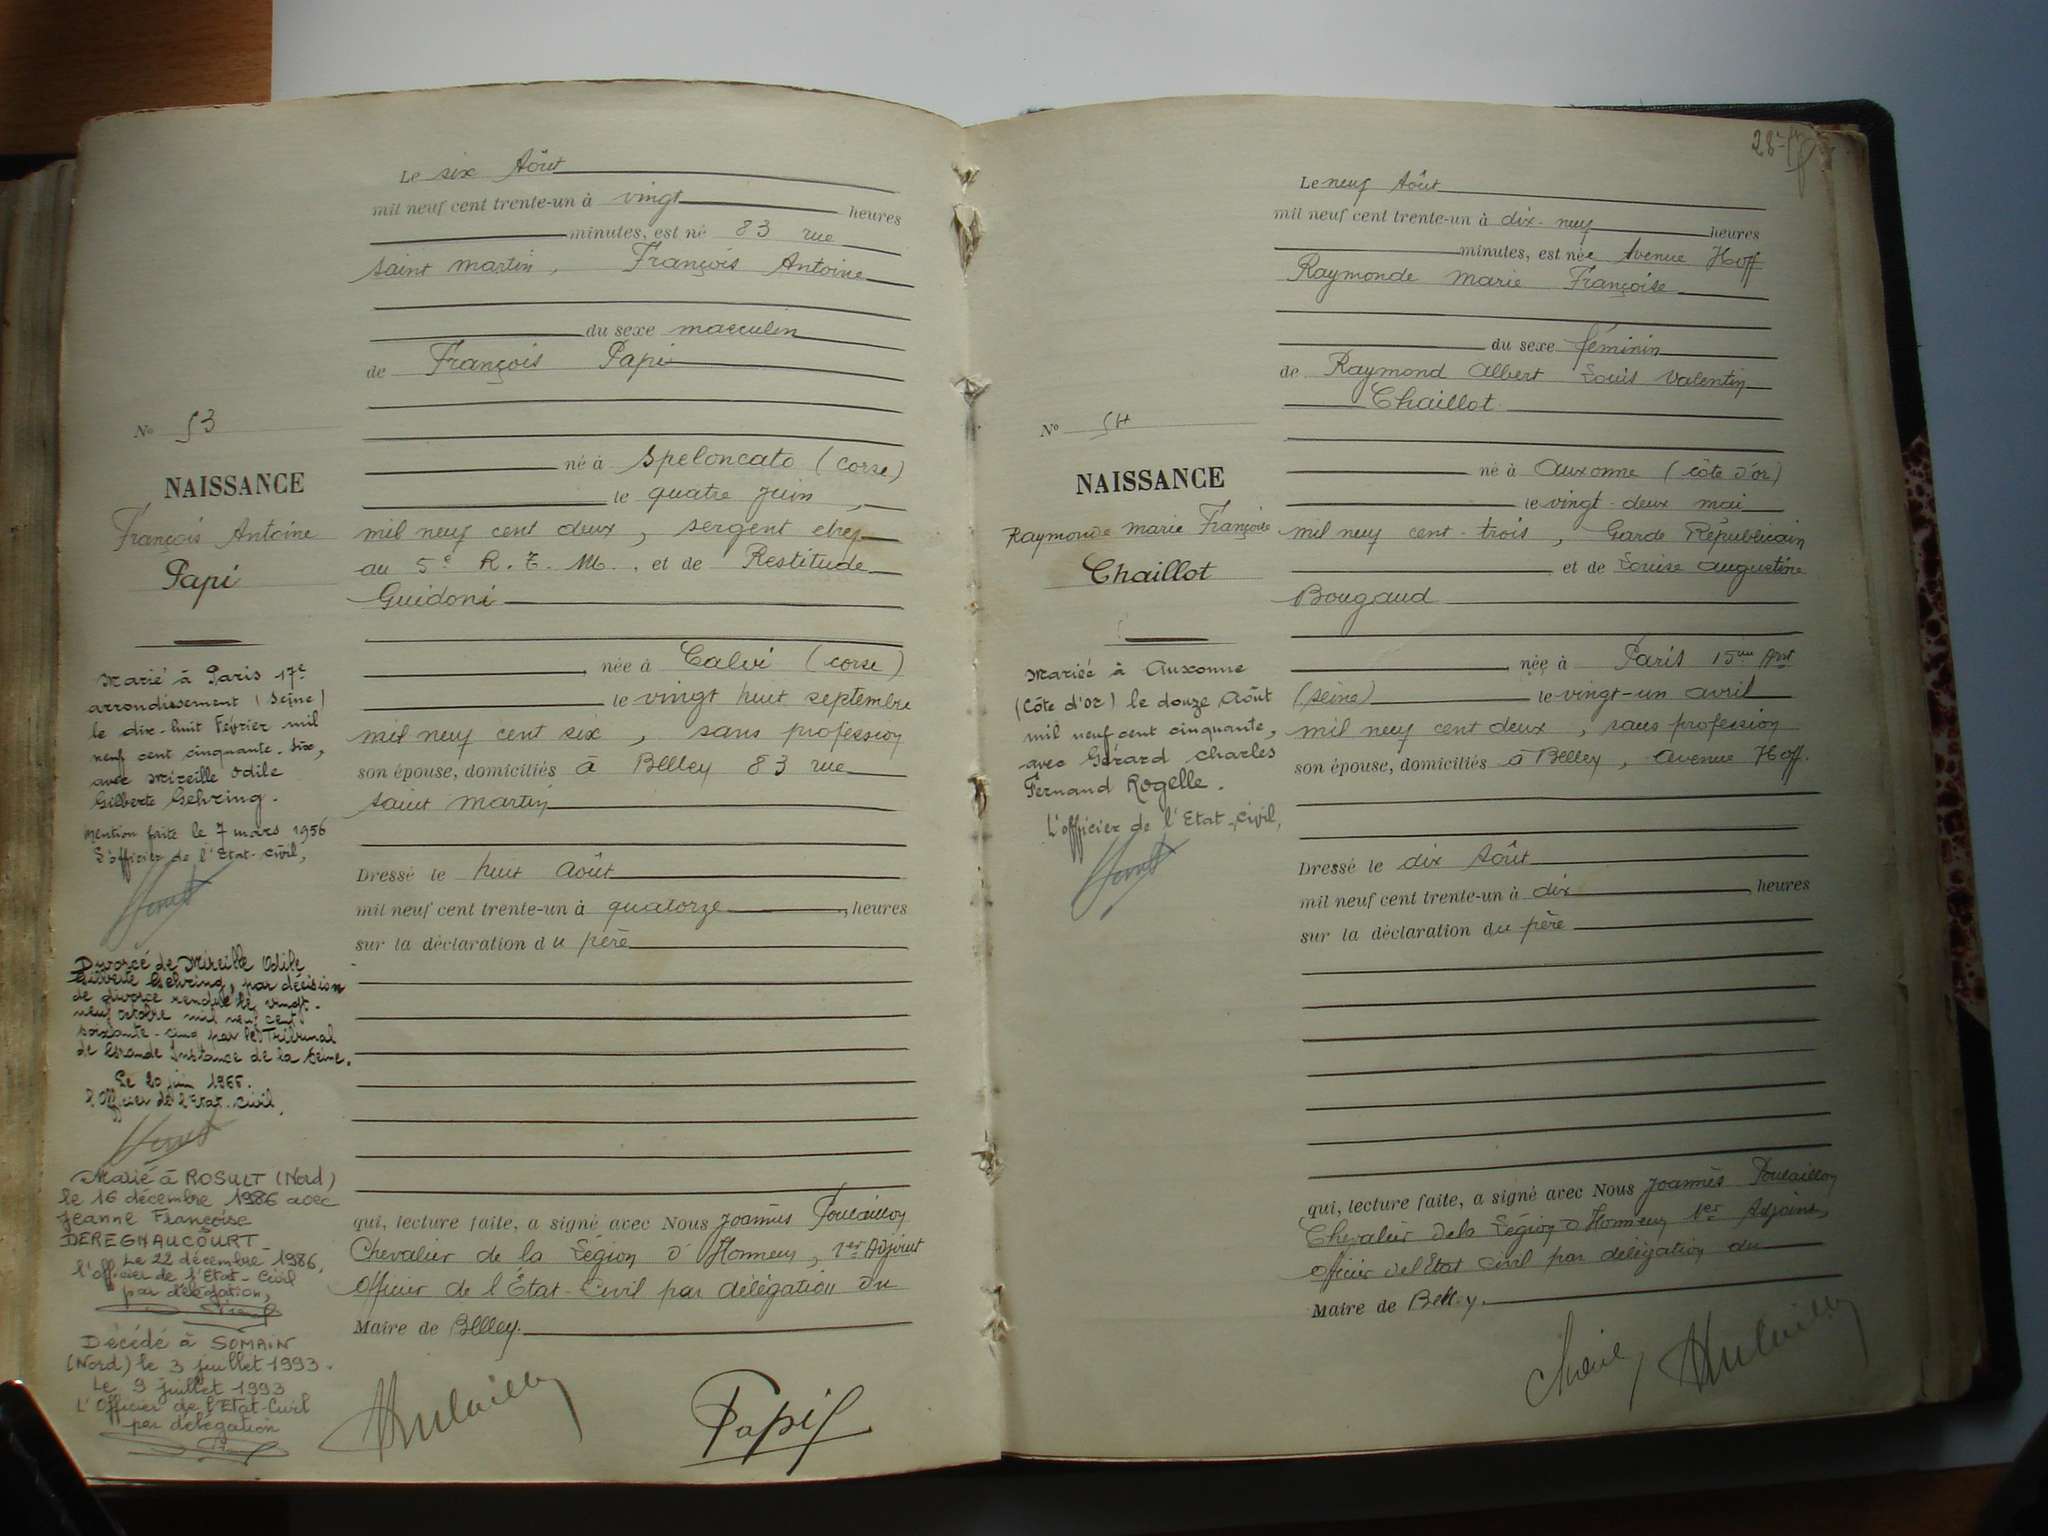 Le six Aôut
mil neuf cent trente-un à vingt heures
minutes, est né 83 rue
saint martin, François Antoine
du sexe masculin
de François Papi
né à Speloncato (corse)
le quatre juin,
mil neuf cent deux, sergent chef
au 5e R. T. M., et de Restitude
Guidoni
née à Calvi (corse)
le vingt huit septembre
mil neuf cent six, sans profession
son épouse, domiciliés à Belley 83 rue
saint martin
Dressé le huit août
mil neuf cent trente-un à quatorze, heures
sur la déclaration du père
qui, lecture faite, a signé avec Nous Joannès Poulaillon
Chevalier de la Légion d'Honneur, 1er Adjoint
Officier de l'État-Civil par délégation du
Maire de Belley.
Papi
No 53
NAISSANCE
François Antoine
Papi
Marié à Paris 17e
arrondissement (Seine)
le dix-huit Février mil
neuf cent cinquante-six,
avec Mireille Odile
Gilberte Gehring.
Mention faite le 7 mars 1956
L'officier de l'Etat-civil,
Divorcé de Mireille Odile
Gilberte Gehring, par décision
de divorce rendue le vingt-
neuf octobre mil neuf cent
soixante-cinq par le Tribunal
de Grande Instance de la Seine.
Le 20 juin 1966.
l'Officier de l'Etat-civil,
Marié à ROSULT (Nord)
le 16 décembre 1986 avec
Jeanne Françoise
DEREGNAUCOURT
Le 22 décembre 1986,
l'officier de l'Etat-Civil
par délégation,
Décédé à SOMAIN
(Nord) le 3 juillet 1993.
Le 9 juillet 1993
L'Officier de l'Etat-Civil
par délégation
28
Le neuf Aôut
mil neuf cent trente-un à dix-neuf heures
minutes, est née Avenue Hoff
Raymonde Marie Françoise
du sexe féminin
de Raymond Albert Louis Valentin
Chaillot
né à Auxonne (côte d'or)
le vingt-deux mai
mil neuf cent-trois, Garde Républicain
et de Louise Augustine
Bougaud
née à Paris 15me Arrt
(seine) le vingt-un avril
mil neuf cent deux, sans profession
son épouse, domiciliés à Belley, avenue Hoff.
Dressé le dix Aôut
mil neuf cent trente-un à dix, heures
sur la déclaration du père
qui, lecture faite, a signé avec Nous Joannès Poulaillon
Chevalier de la Légion d'Honneur 1er Adjoint,
Officier de l'Etat Civil par délégation du
Maire de Belley.
No 54
NAISSANCE
Raymonde Marie Françoise
Chaillot
Mariée à Auxonne
(Côte d'or) le douze Août
mil neuf cent cinquante,
avec Gérard Charles
Fernand Rogelle.
L'officier de l'Etat-civil,